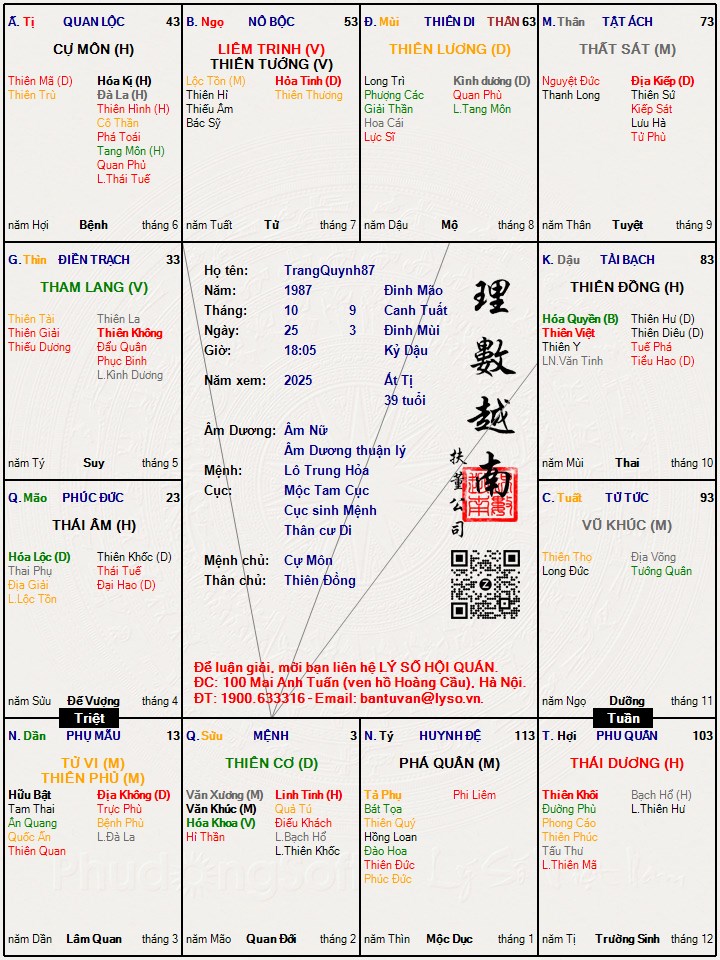 Ấ. Tị QUAN LỘC 43
CỰ MÔN (H)
Thiên Mã (D) Hóa Kị (H)
Thiên Trù Đà La (H)
Thiên Hình (H)
Cô Thần
Phá Toái
Tang Môn (H)
Quan Phủ
L.Thái Tuế
năm Hợi Bệnh tháng 6
B. Ngọ NÔ BỘC 53
LIÊM TRINH (V)
THIÊN TƯỚNG (V)
Lộc Tồn (M) Hỏa Tinh (D)
Thiên Hỉ Thiên Thương
Thiếu Âm
Bác Sỹ
năm Tuất Tử tháng 7
Đ. Mùi THIÊN DI THÂN 63
THIÊN LƯƠNG (D)
Long Trì Kình dương (D)
Phượng Các Quan Phù
Giải Thần L.Tang Môn
Hoa Cái
Lực Sĩ
năm Dậu Mộ tháng 8
M. Thân TẬT ÁCH 73
THẤT SÁT (M)
Nguyệt Đức Địa Kiếp (D)
Thanh Long Thiên Sứ
Kiếp Sát
Lưu Hà
Tử Phù
năm Thân Tuyệt tháng 9
G. Thìn ĐIỀN TRẠCH 33
THAM LANG (V)
Thiên Tài Thiên La
Thiên Giải Thiên Không
Thiếu Dương Đẩu Quân
Phục Binh
L.Kình Dương
năm Tý Suy tháng 5
Họ tên: TrangQuynh87
Năm: 1987 Đinh Mão
Tháng: 10 9 Canh Tuất
Ngày: 25 3 Đinh Mùi
Giờ: 18:05 Kỷ Dậu
Năm xem: 2025 Ất Tị
39 tuổi
Âm Dương: Âm Nữ
Âm Dương thuận lý
Mệnh: Lô Trung Hỏa
Cục: Mộc Tam Cục
Cục sinh Mệnh
Thân cư Di
Mệnh chủ: Cự Môn
Thân chủ: Thiên Đồng
理數越南
扶董公司
Để luận giải, mời bạn liên hệ LÝ SỐ HỘI QUÁN.
ĐC: 100 Mai Anh Tuấn (ven hồ Hoàng Cầu), Hà Nội.
ĐT: 1900.633316 - Email: bantuvan@lyso.vn.
K. Dậu TÀI BẠCH 83
THIÊN ĐỒNG (H)
Hóa Quyền (B) Thiên Hư (D)
Thiên Việt Thiên Diêu (D)
Thiên Y Tuế Phá
LN.Văn Tinh Tiểu Hao (D)
năm Mùi Thai tháng 10
Q. Mão PHÚC ĐỨC 23
THÁI ÂM (H)
Hóa Lộc (D) Thiên Khốc (D)
Thai Phụ Thái Tuế
Địa Giải Đại Hao (D)
L.Lộc Tồn
năm Sửu Đế Vượng tháng 4
C. Tuất TỬ TỨC 93
VŨ KHÚC (M)
Thiên Thọ Địa Võng
Long Đức Tướng Quân
năm Ngọ Dưỡng tháng 11
Triệt
Tuần
N. Dần PHỤ MẪU 13
TỬ VI (M)
THIÊN PHỦ (M)
Hữu Bật Địa Không (D)
Tam Thai Trực Phù
Ân Quang Bệnh Phù
Quốc Ấn L.Đà La
Thiên Quan
năm Dần Lâm Quan tháng 3
Q. Sửu MỆNH 3
THIÊN CƠ (D)
Văn Xương (M) Linh Tinh (H)
Văn Khúc (M) Quả Tú
Hóa Khoa (V) Điếu Khách
Hỉ Thần L.Bạch Hổ
L.Thiên Khốc
năm Mão Quan Đới tháng 2
N. Tý HUYNH ĐỆ 113
PHÁ QUÂN (M)
Tả Phụ Phi Liêm
Bát Tọa
Thiên Quý
Hồng Loan
Đào Hoa
Thiên Đức
Phúc Đức
năm Thìn Mộc Dục tháng 1
T. Hợi PHU QUÂN 103
THÁI DƯƠNG (H)
Thiên Khôi Bạch Hổ (H)
Đường Phù L.Thiên Hư
Phong Cáo
Thiên Phúc
Tấu Thư
L.Thiên Mã
năm Tị Trường Sinh tháng 12